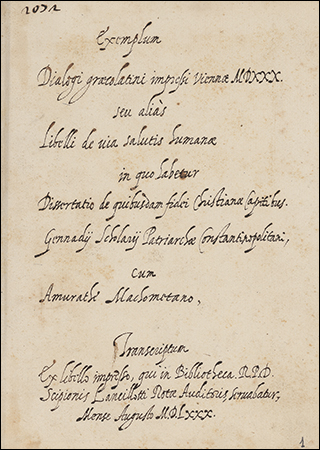 2092
Exemplum
Dialogi græcolatini impressi Viennæ MDXXX.
seu aliàs
Libelli de via salutis humanæ
in quo habetur
Dissertatio de quibusdam fidei Christianæ Capitibus.
Gennadij Scholarij Patriarchæ Constantinopolitani,
cum
Amurathe Machometano,
Transcriptum
Ex libello impresso, qui in Bibliotheca R.P.D.
Scipionis Lancillotti Rotæ Auditoris servabatur,
Mense Augusto MDLXXX.
1